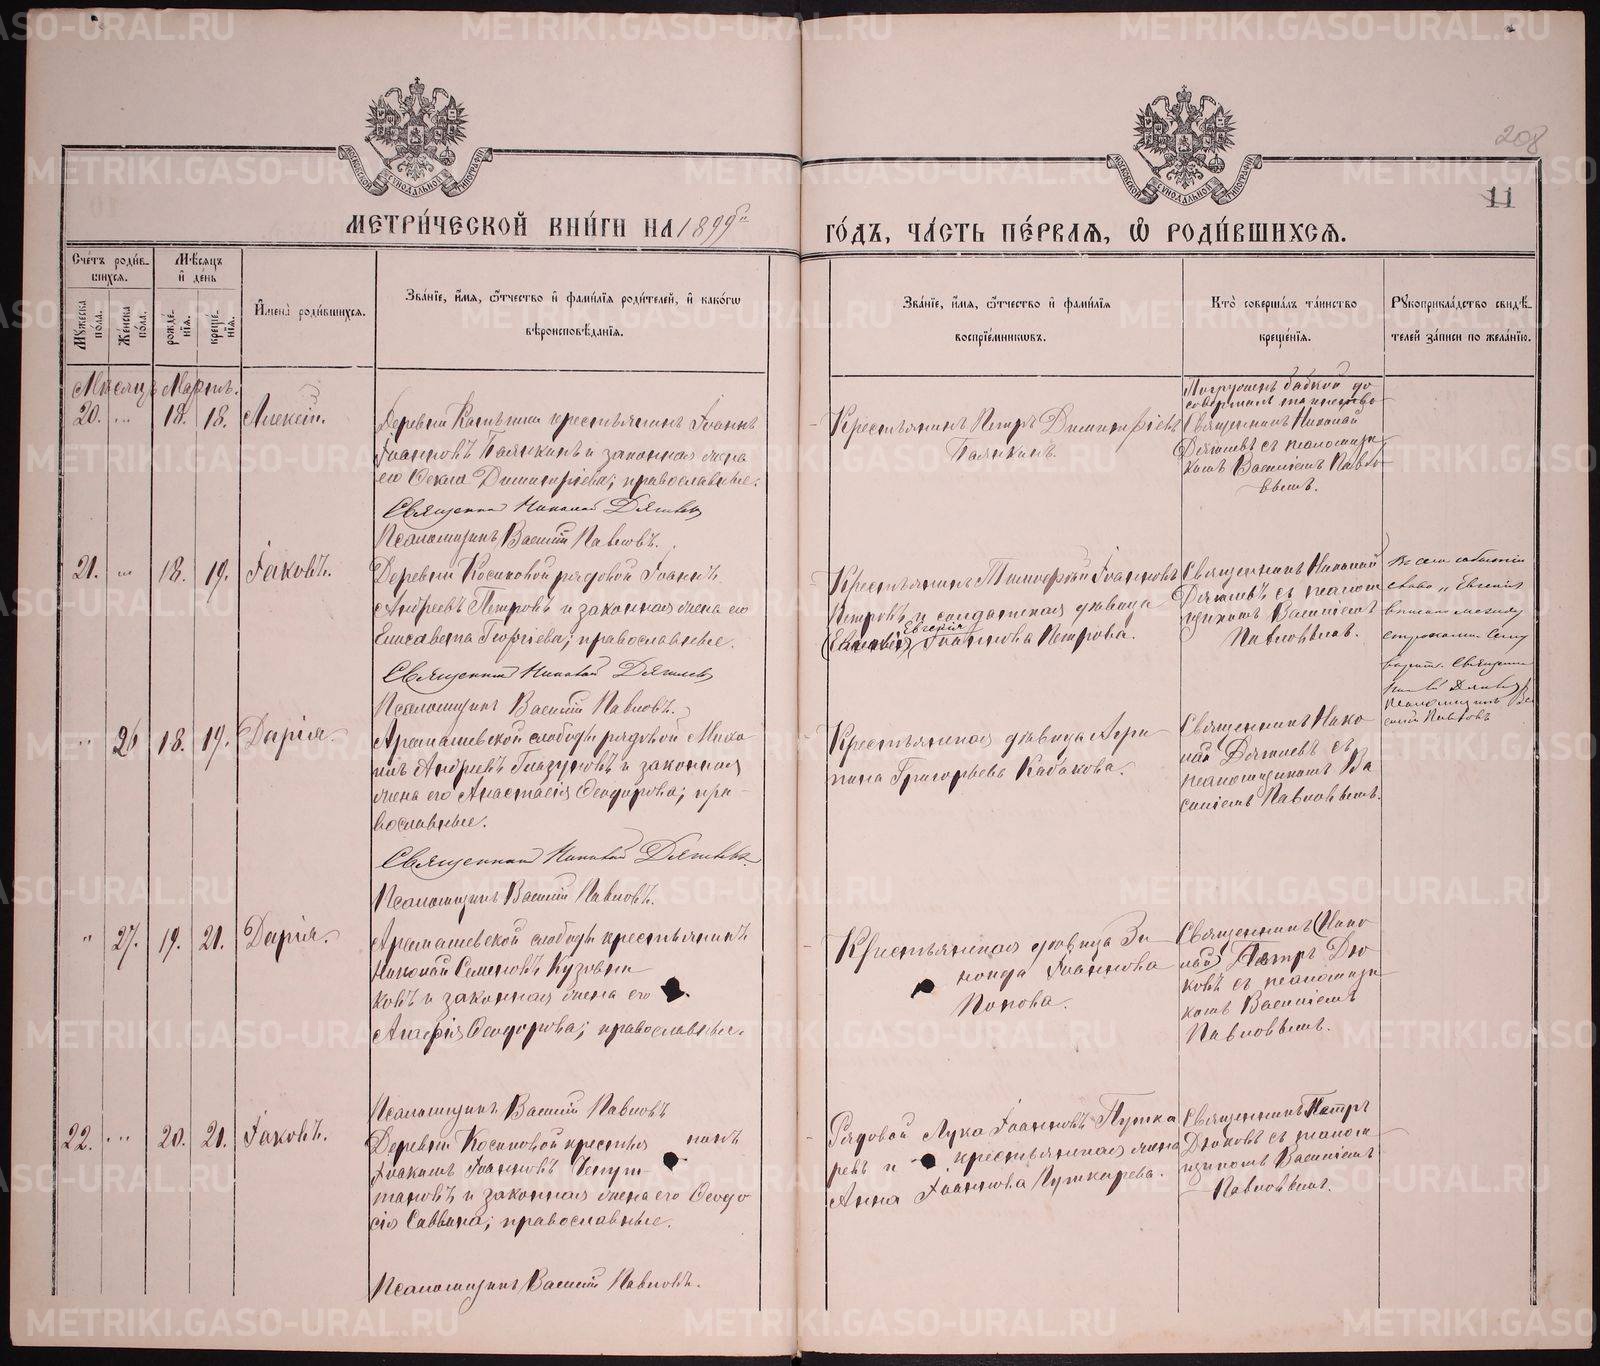 208
11
МЕТРИ́ЧЕСКОЙ КНИ́ГИ НА 1899й
ГО́ДЪ, ЧА́СТЬ ПЕ́РВАЯ, Ѡ РОДИ́ВШИХСЯ.
Сче́тъ роди́вшихся.
Мѣ́сяцъ и҆ де́нь
Му́жеска по́ла.
Же́нска по́ла.
рожде́нія.
креще́нія.
И҆мена̀ роди́вшихся.
Зва́ніе, и҆́мя, ѻ҆́тчество и҆ фами́лія роди́телей, и҆ како́гѡ
вѣроисповѣ́данія.
Зва́ніе, и҆́мя, ѻ҆́тчество и҆ фами́лія
воспріе́мникѡвъ.
Кто̀ соверша́лъ та́инство
креще́нія.
Рꙋкоприкла́дство свидѣ́телей за́писи по жела́нію.
Мѣсяцъ Мартъ.
20. " 18. 18. Алексій.
Крестьянинъ Іоаннъ
Іоанновъ и законная жена
его Ѳекла Димитріева; православные.
Священникъ Николай Дягилевъ
Псаломщикъ Василій Павловъ.
Крестьянинъ Петръ Димитріевъ
Погружен бабкой до
совершалъ таинство
Священникъ Николай
Дягилевъ съ псаломщи
комъ Василіемъ Павло
вымъ.
21. " 18. 19. Іаковъ.
Деревни Косиковой рядовой Іоаннъ
Андреевъ Петровъ и законная жена его
Елисавета Георгіева; православные.
Священникъ Николай Дягилевъ
Псаломщикъ Василій Павловъ.
Крестьянинъ Тимофей Іоанновъ
Петровъ и солдатская дѣвица
Евгенія
Іоаннова Петрова.
Священникъ Николай
Дягилевъ съ псалом
щикомъ Василіемъ
Павловымъ.
слово „Евгенія
вписано между
строками
Священникъ
Псаломщикъ Ва
силій Павловъ
" 26 18. 19. Дарія.
Арамашевской слободы рядовой Миха
илъ Андреевъ Глазуновъ и законная
жена его Анастасія Ѳеодорова; пра-
вославные.
Священникъ Николай Дягилевъ
Псаломщикъ Василій Павловъ.
Крестьянская дѣвица Агри
пина Григорьева Кабакова.
Священникъ Нико
лай Дягилевъ съ
псаломщикомъ Ва
силіемъ Павловымъ.
" 27. 19. 21. Дарія.
Арамашевской слободы крестьянинъ
Николай Семеновъ Кузовни
ковъ и законная жена его
Ѳеодорова; православные.
Псаломщикъ Василій Павловъ
Крестьянская дѣвица Зи
наида Іоаннова
Попова.
Священникъ (Нико
лай) Петръ Дю
ковъ съ псаломщи
комъ Василіемъ
Павловымъ.
22. " 20. 21. Іаковъ.
Деревни Косиковой крестья нинъ
Іоакимъ Іоанновъ Чепур-
тановъ и законная жена его Ѳеодо
сія Саввина; православные.
Псаломщикъ Василій Павловъ.
Рядовой Лука Іоанновъ Пушка
ревъ и крестьянская жена
Анна Іоаннова Пушкарева.
Священникъ Петръ
Дюковъ съ псалом
щикомъ Василіемъ
Павловымъ.
METRIKI.GASO-URAL.RU